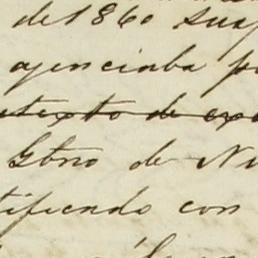 de 1860 sus
agenciaba p
texto de ex
Gbno de Ni
tificando con